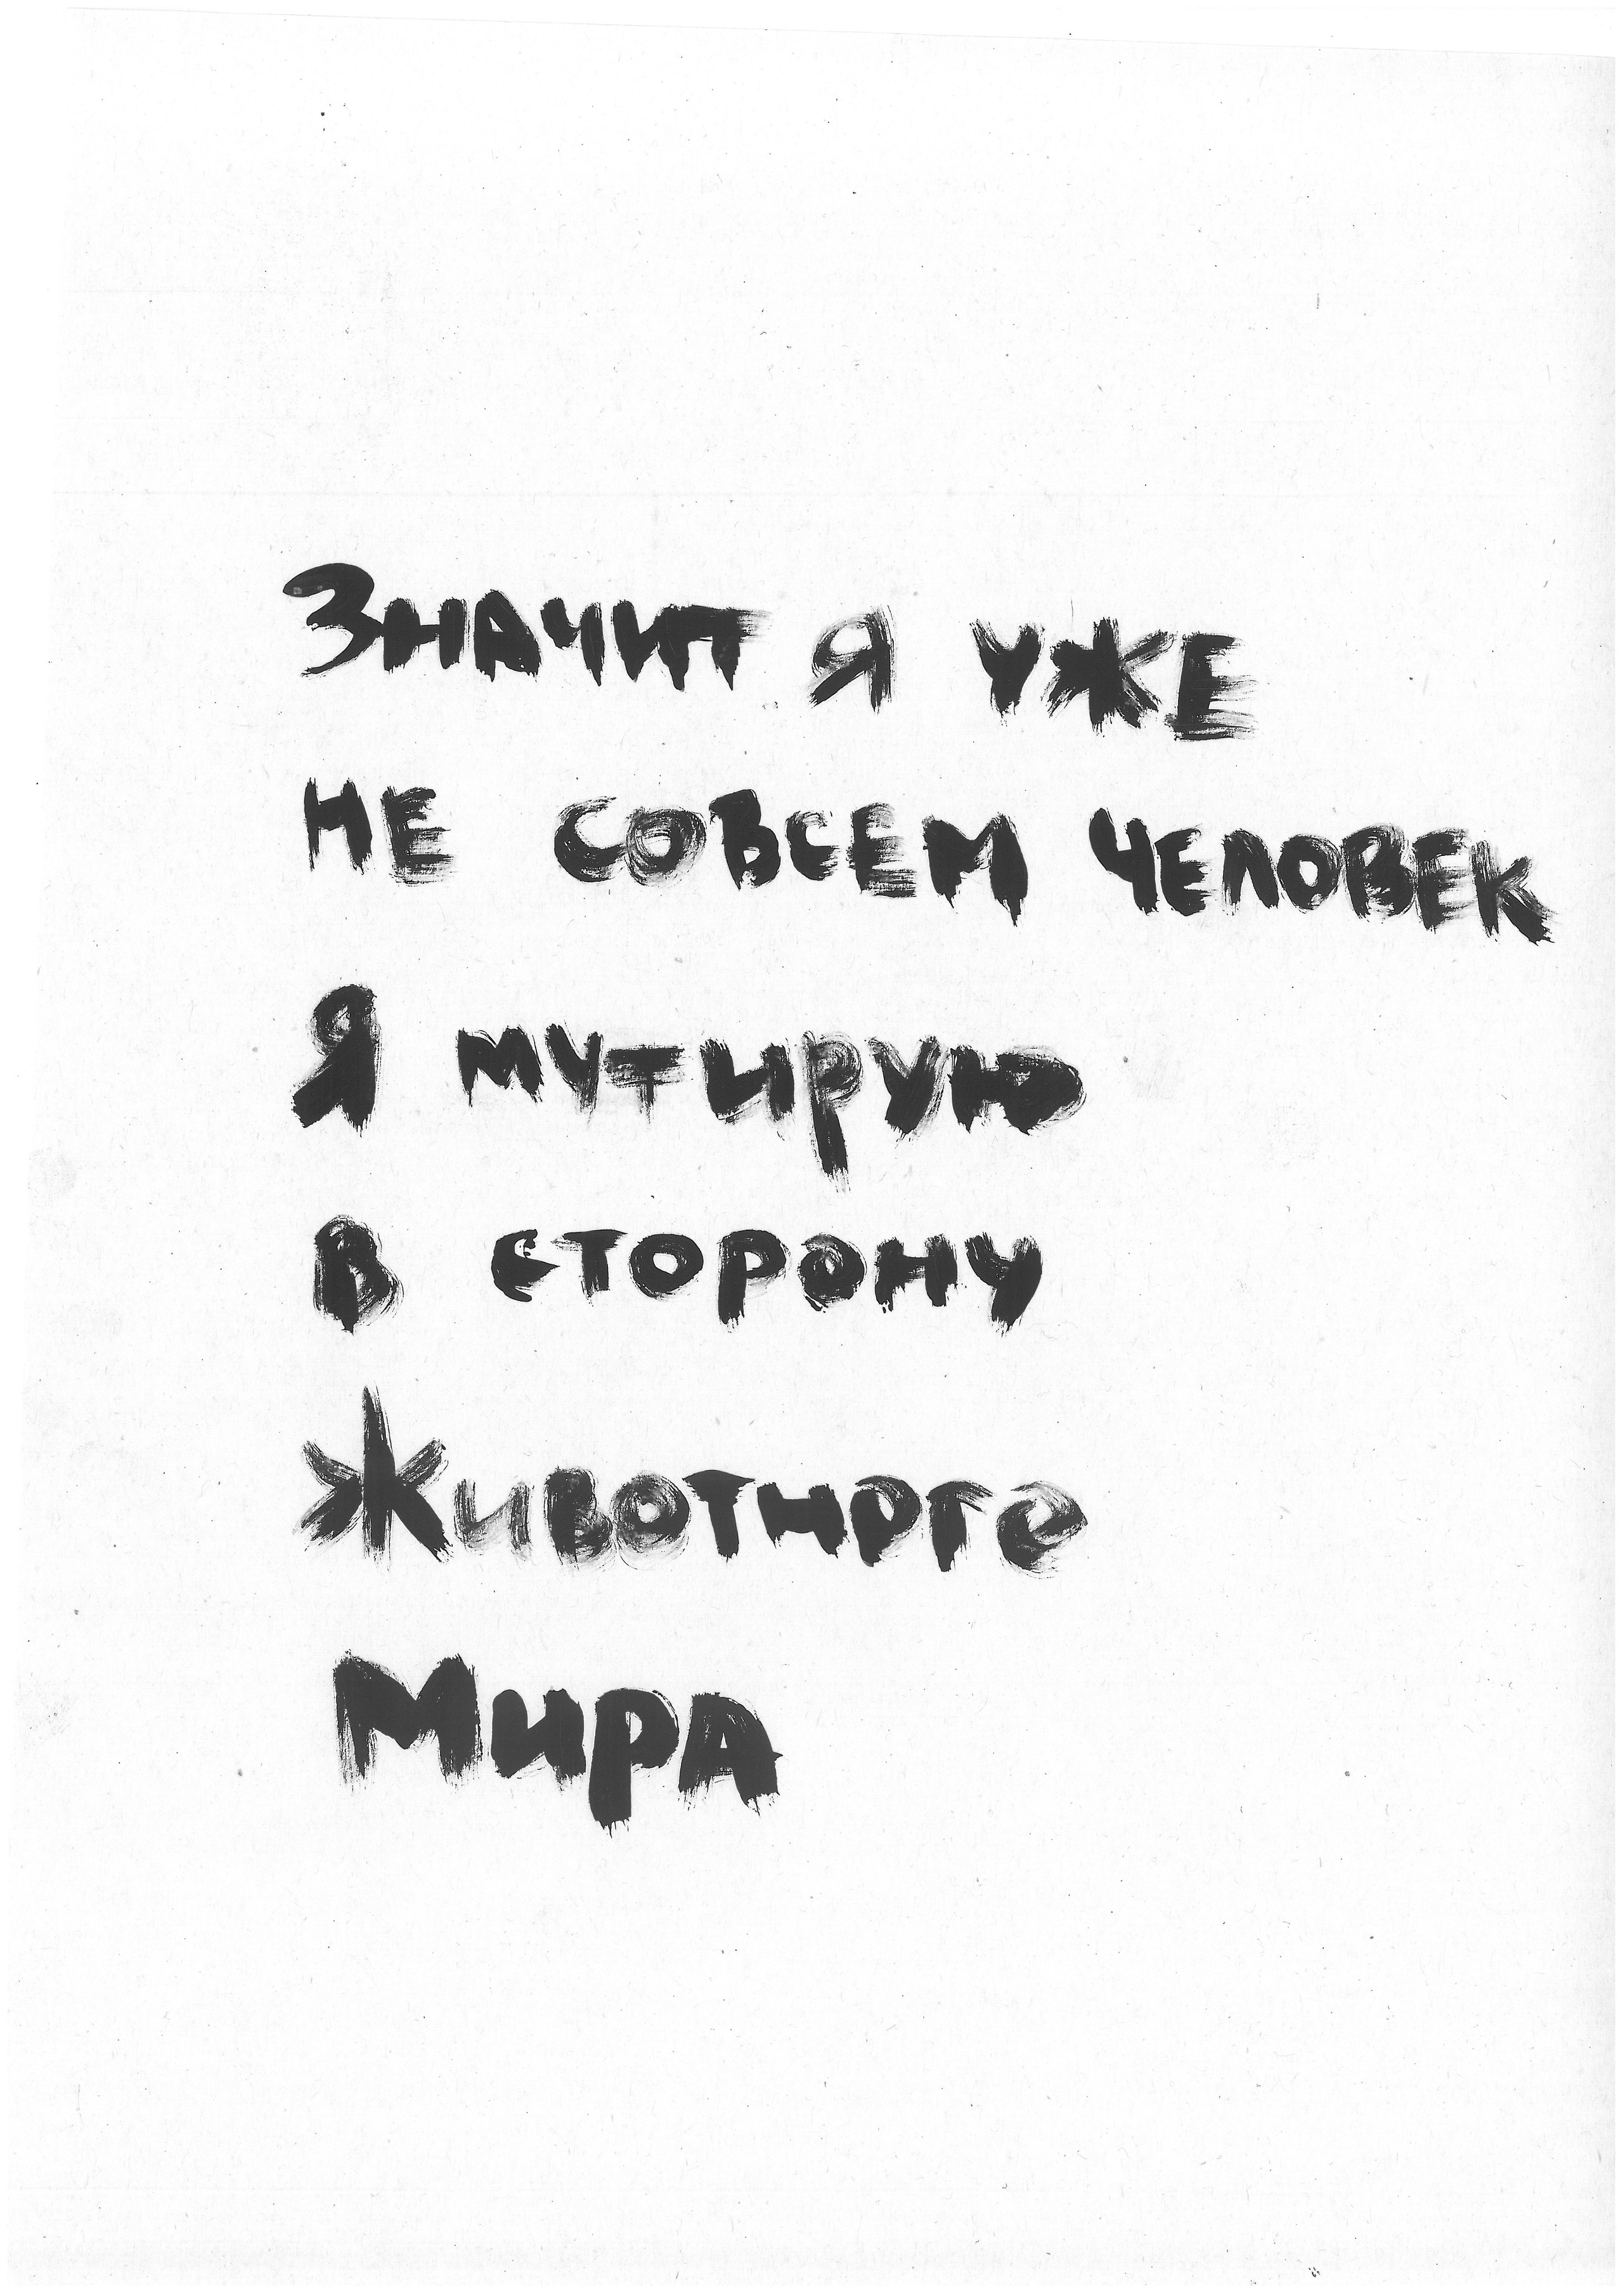 Значит я уже
не совсем человек
Я мутирую
в сторону
Животного
Мира